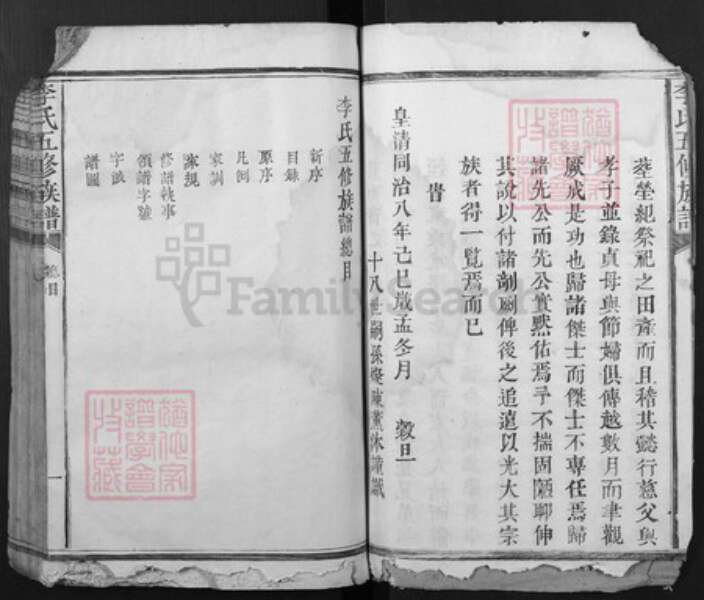 李氏五修族譜
塋塋紀祭祀之田產而且稽其懿行慈父與
孝子並錄貞母與節婦俱傳越數月而聿觀
厥成是功也歸諸傑士而傑士不專任焉歸
諸先公而先公實默佑焉予不揣固陋聊伸
其說以付諸剞劂俾後之追遠以光大其宗
族者得一覽焉而已
旹
皇清同治八年己巳歲孟冬月 穀旦
十八世嗣孫 薰沐謹識
李氏五修族譜總目
新序
目錄
原序
凡例
家訓
家規
修譜執事
領譜字號
字派
譜圖
李氏五修族譜
總目
一
FamilySearch
猶他家譜學會特藏
猶他家譜學會特藏